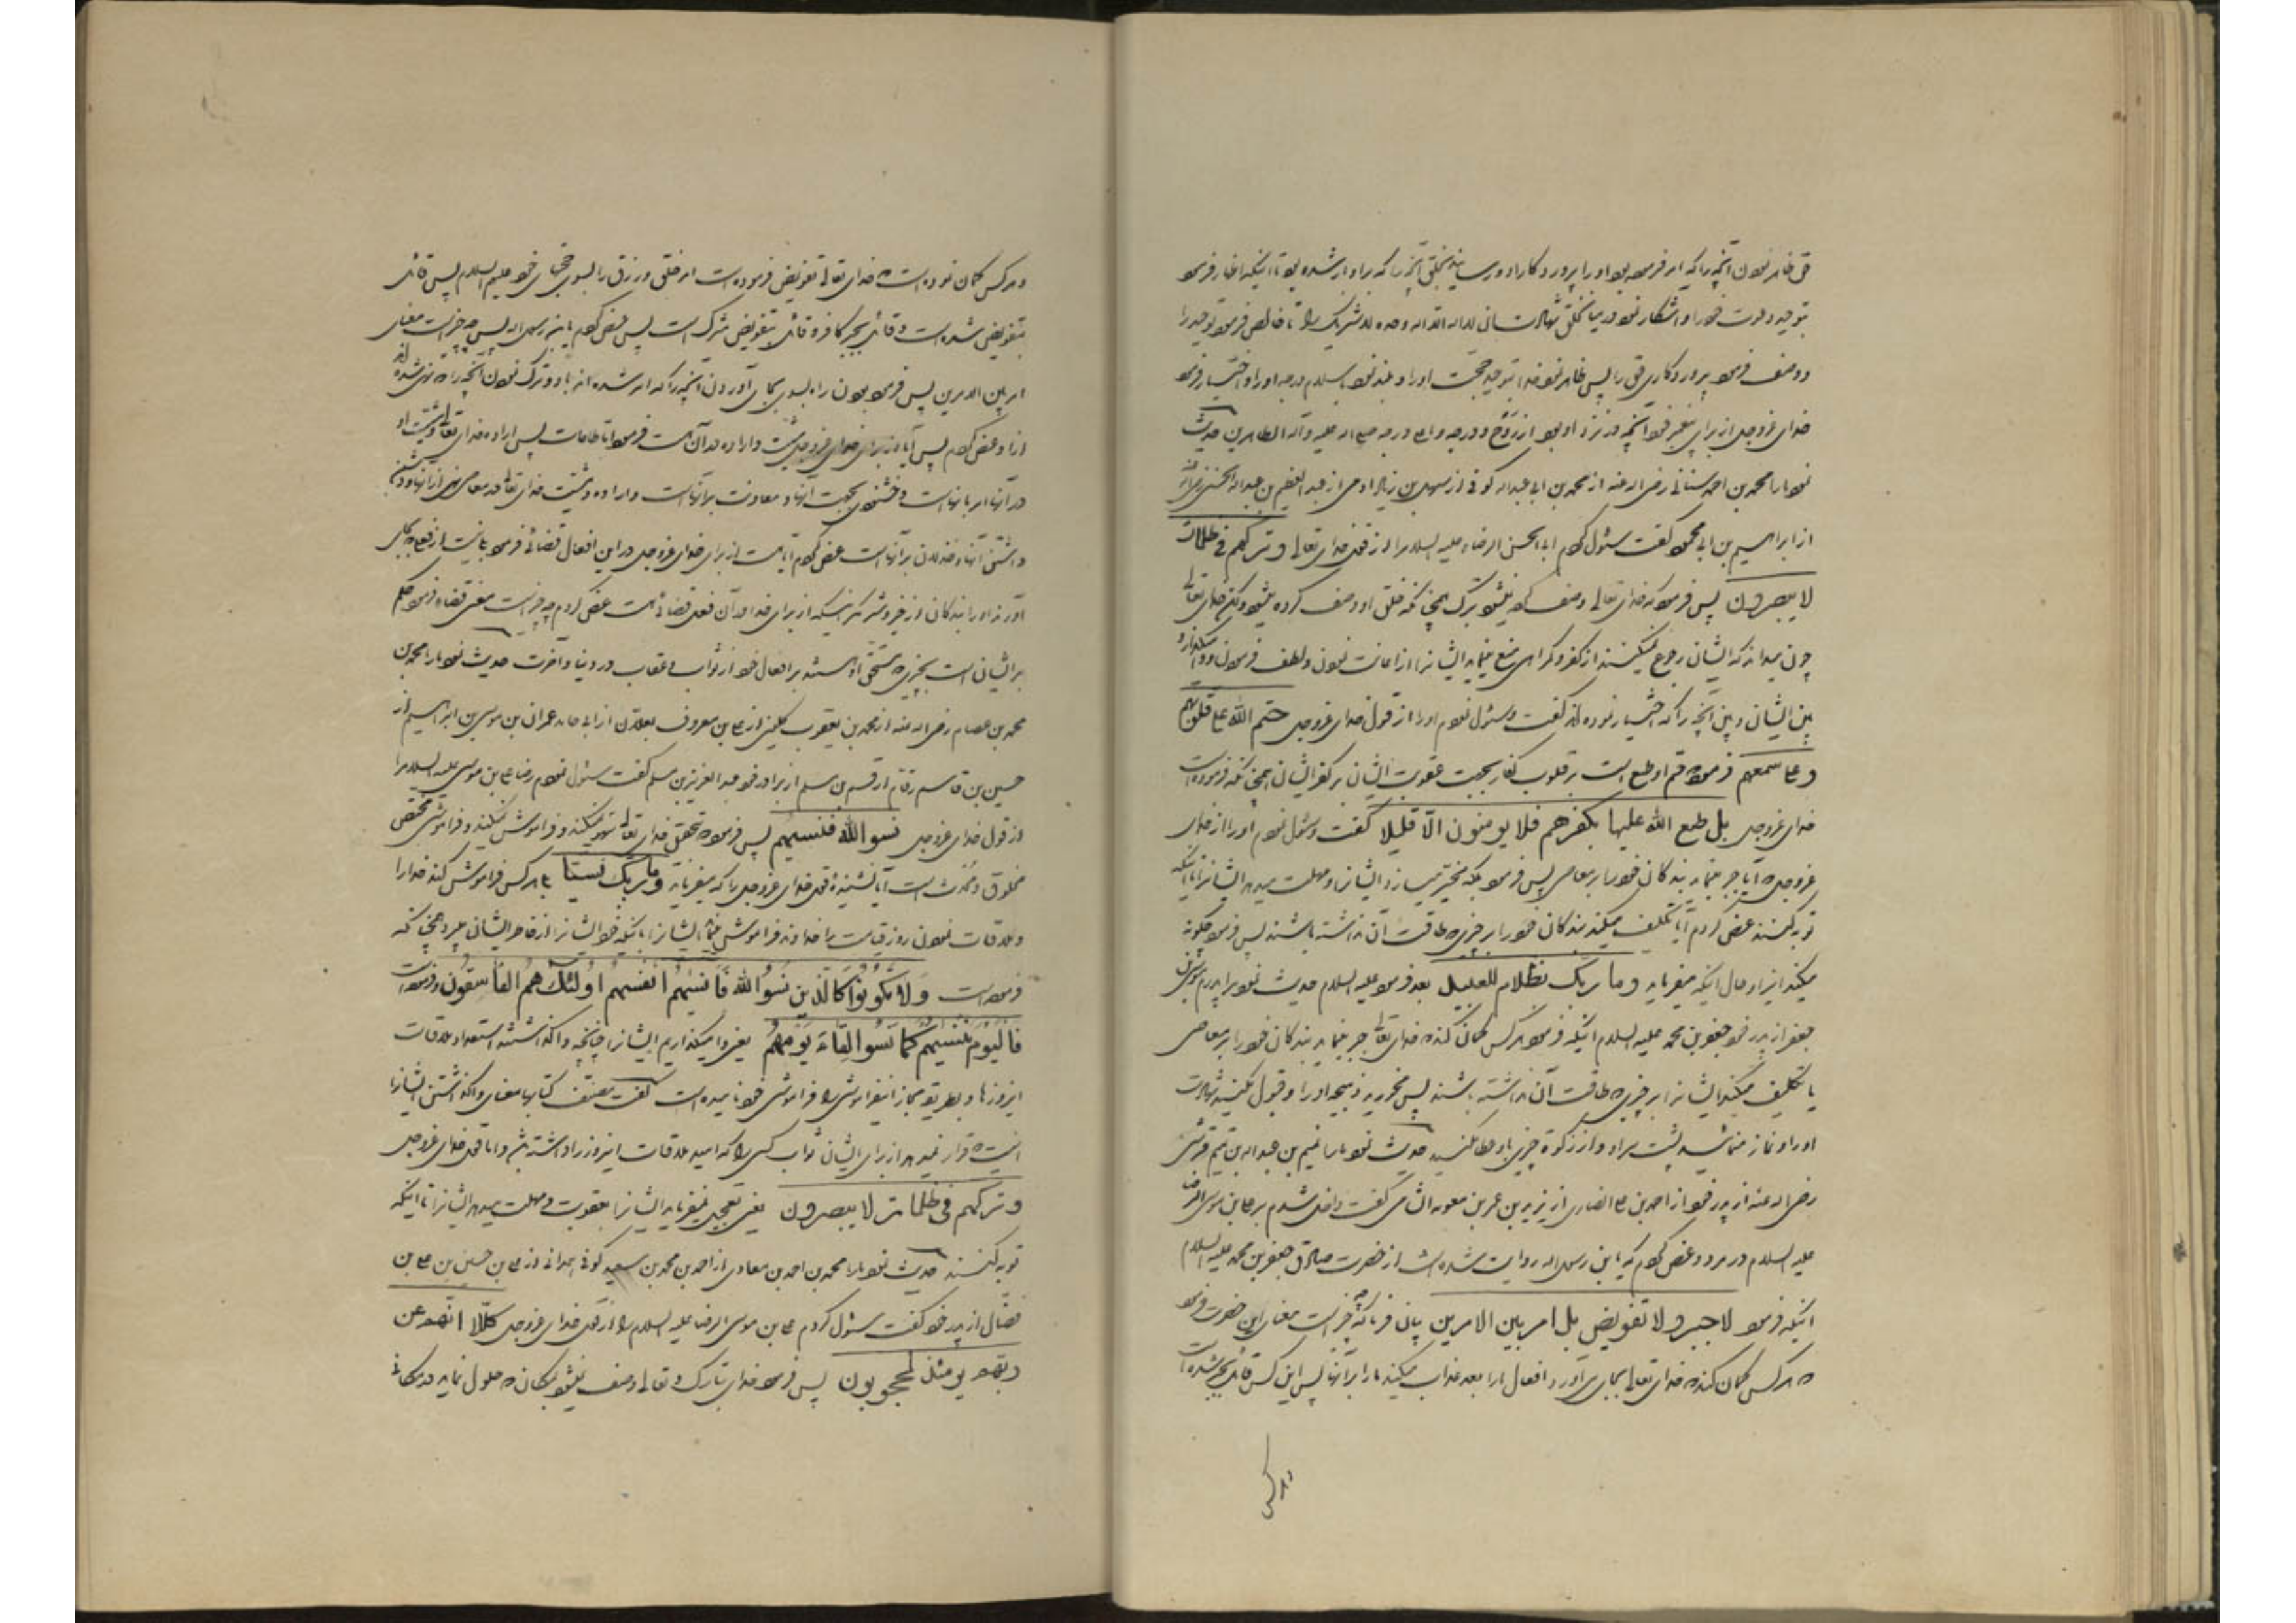 حق ظاهر نمودن آنچه را که امر فرموده بود او را پروردگار او و رسانید بخلق آنچه را که بر او بار شده بود تا اینکه اظهار فرمود
توحید و دعوت خود را و آشکار نمود در میان خلق شهادت ان لا اله الا الله وحده لا شریک له را تا خالص فرمود توحید را
و وصف فرمود پروردگاری حق را پس ظاهر نمود خدا بتوحید حجت او را و بلند نمود باسلام درجه او را و اختیار فرمود
خدای عزوجل از برای پیغمبر خود آنچه در نزد او بود از روح و درجه و صلی الله علیه و آله الطاهرین حدیث
نمود ما را محمد بن احمد سنانی رضی الله عنه از محمد بن ابی عبدالله کوفی از سهل بن زیاد ادمی از عبدالعظیم بن عبدالله الحسنی رضی الله عنه
از ابراهیم بن ابی محمود گفت سئول کردم ابا الحسن الرضا علیه السلام را از قول خدای تعالی وترکهم فی ظلمات
لا یبصرون پس فرمود که خدای تعالی وصف کرده نمیشود بترک همچنانکه خلق او وصف کرده میشود ولکن خدای تعالی
چون میداند که ایشان رجوع نمیکنند از کفر و گمراهی منع مینماید ایشانرا از اعانت نمودن و لطف فرمودن و وامیگذارد
بین ایشان و بین آنچه را که اختیار نموده اند گفت و سئول نمودم او را از قول خدای عزوجل ختم الله علی قلوبهم
وعلی سمعهم فرمود ختم او طبع است بر قلوب کفار بجهت عقوبت ایشان بر کفر ایشان همچنانکه فرموده است
خدای عزوجل بل طبع الله علیها بکفرهم فلا یومنون الا قلیلا گفت و سئول نمودم او را از خدای
عزوجل که آیا جبر مینماید بندگان خود را بر معاصی پس فرمود بلکه مخیر میسازد ایشانرا و مهلت میدهد ایشانرا تا اینکه
توبه کنند عرض کردم آیا تکلیف میکند بندگان خود را بر چیزی که طاقت آن نداشته باشند پس فرمود چگونه
میکند اینرا و حال اینکه میفرماید وما ربک بظلام للعبید بعد فرمود علیه السلام حدیث نمود مرا پدرم موسی بن
جعفر از پدر خود جعفر بن محمد علیه السلام اینکه فرمود هر کس گمان کند که خدای تعالی جبر مینماید بندگان خود را بر معاصی
یا تکلیف میکند ایشانرا بر چیزی که طاقت آن نداشته باشند پس مخورید ذبیحه او را و قبول نکنید شهادت
او را و نماز منمائید پشت سر او و از زکوة چیزی باو عطا نکنید حدیث نمود ما را تمیم بن عبدالله بن تمیم قرشی
رضی الله عنه از پدر خود از احمد بن علی انصاری از یزید بن عمر بن معویه الشامی گفت داخل شدم بر علی بن موسی الرضا
علیه السلام در مرو و عرض کردم که یابن رسول الله روایت شده است از حضرت صادق جعفر بن محمد علیه السلام
اینکه فرمود لا جبر ولا تفویض بل امر بین الامرین بیان فرما که چه چیز است معنی این حضرت فرمود
که هر کس گمان کند که خدای تعالی بجای می آورد افعال ما را بعد عذاب میکند ما را بر آنها پس این کس قائل بجبر شده است
و هر کس
و هر کس گمان نموده است که خدای تعالی تفویض فرموده است امر خلق و رزق را بسوی حجتهای خود علیهم السلام پس قائل
بتفویض شده است و قائل بجبر کافر و قائل بتفویض مشرک است پس عرض کردم یابن رسول الله پس چه چیز است معنی
امر بین الامرین پس فرمود بودن راه بسوی بجای آوردن آنچه را که امر شده اند باو و ترک نمودن آنچه را که نهی شده اند
از او عرض کردم پس آیا از برای خدای عزوجل مشیت و اراده در آن هست فرمود اما طاعات پس اراده خدای تعالی و مشیت او
در آنها امر بانهاست و خشنودی بجهت آنها و معاونت بر آنهاست و اراده و مشیت خدای تعالی در معاصی نهی از آنها و دشمن
داشتن آنها و خذلان بر آنهاست عرض کردم آیا هست از برای خدای عزوجل در این افعال قضائی فرمود بلی نیست از فعلی که بجای
آورند او را بندگان از خیر و شر مگر اینکه از برای خدا در آن فعل قضائی هست عرض کردم چه چیز است معنی قضا فرمود حکم
بر ایشان است بچیزی که مستحق او هستند بر افعال خود از ثواب و عقاب در دنیا و آخرت حدیث نمود ما را محمد بن
محمد بن عصام رضی الله عنه از محمد بن یعقوب کلینی از علی بن معروف بعلان از ابی حامد عمران بن موسی بن ابراهیم از
حسین بن قاسم رقام از قسم بن مسلم از برادر خود عبدالعزیز بن مسلم گفت سئول نمودم رضا علی بن موسی علیه السلام را
از قول خدای عزوجل نسوا الله فنسیهم پس فرمود که بتحقیق خدای تعالی سهو نمیکند و فراموش نمیکند و فراموشی مختص
مخلوق و محدث است آیا نشنیدهٔ قول خدای عزوجل را که میفرماید وما ربک نسیا بلی هر کس فراموش کند خدا را
و ملاقات نمودن روز قیامت را خداوند فراموش مینماید ایشانرا باینکه خود ایشانرا از خاطر ایشان میبرد همچنانکه
فرموده است ولا تکونوا کالذین نسوا الله فانسیهم انفسهم اولئک هم الفاسقون و فرموده است
فالیوم ننسیهم کما نسوا لقاء یومهم یعنی وامیگذاریم ایشانرا چنانچه واگذاشتند استعداد ملاقات
اینروز را و بطریق مجاز اینفراموشی را فراموشی خود نامیده است گفت مصنف کتاب معنی واگذاشتن ایشانرا
اینست که قرار نمیدهد از برای ایشان ثواب کسی را که امید ملاقات اینروز را داشته باشد و اما قول خدای عزوجل
وترکهم فی ظلمات لا یبصرون یعنی تعجیل نمیفرماید ایشانرا بعقوبت و مهلت میدهد ایشانرا تا اینکه
توبه کنند حدیث نمود ما را محمد بن احمد بن معاذی از احمد بن محمد بن سعید کوفی همدانی از علی بن حسین بن علی بن
فضال از پدر خود گفت سئول کردم علی بن موسی الرضا علیه السلام را از قول خدای عزوجل کلا انهم عن
ربهم یومئذ لمحجوبون پس فرمود خدای تبارک و تعالی وصف نمیشود بمکان که حلول نماید در مکانی